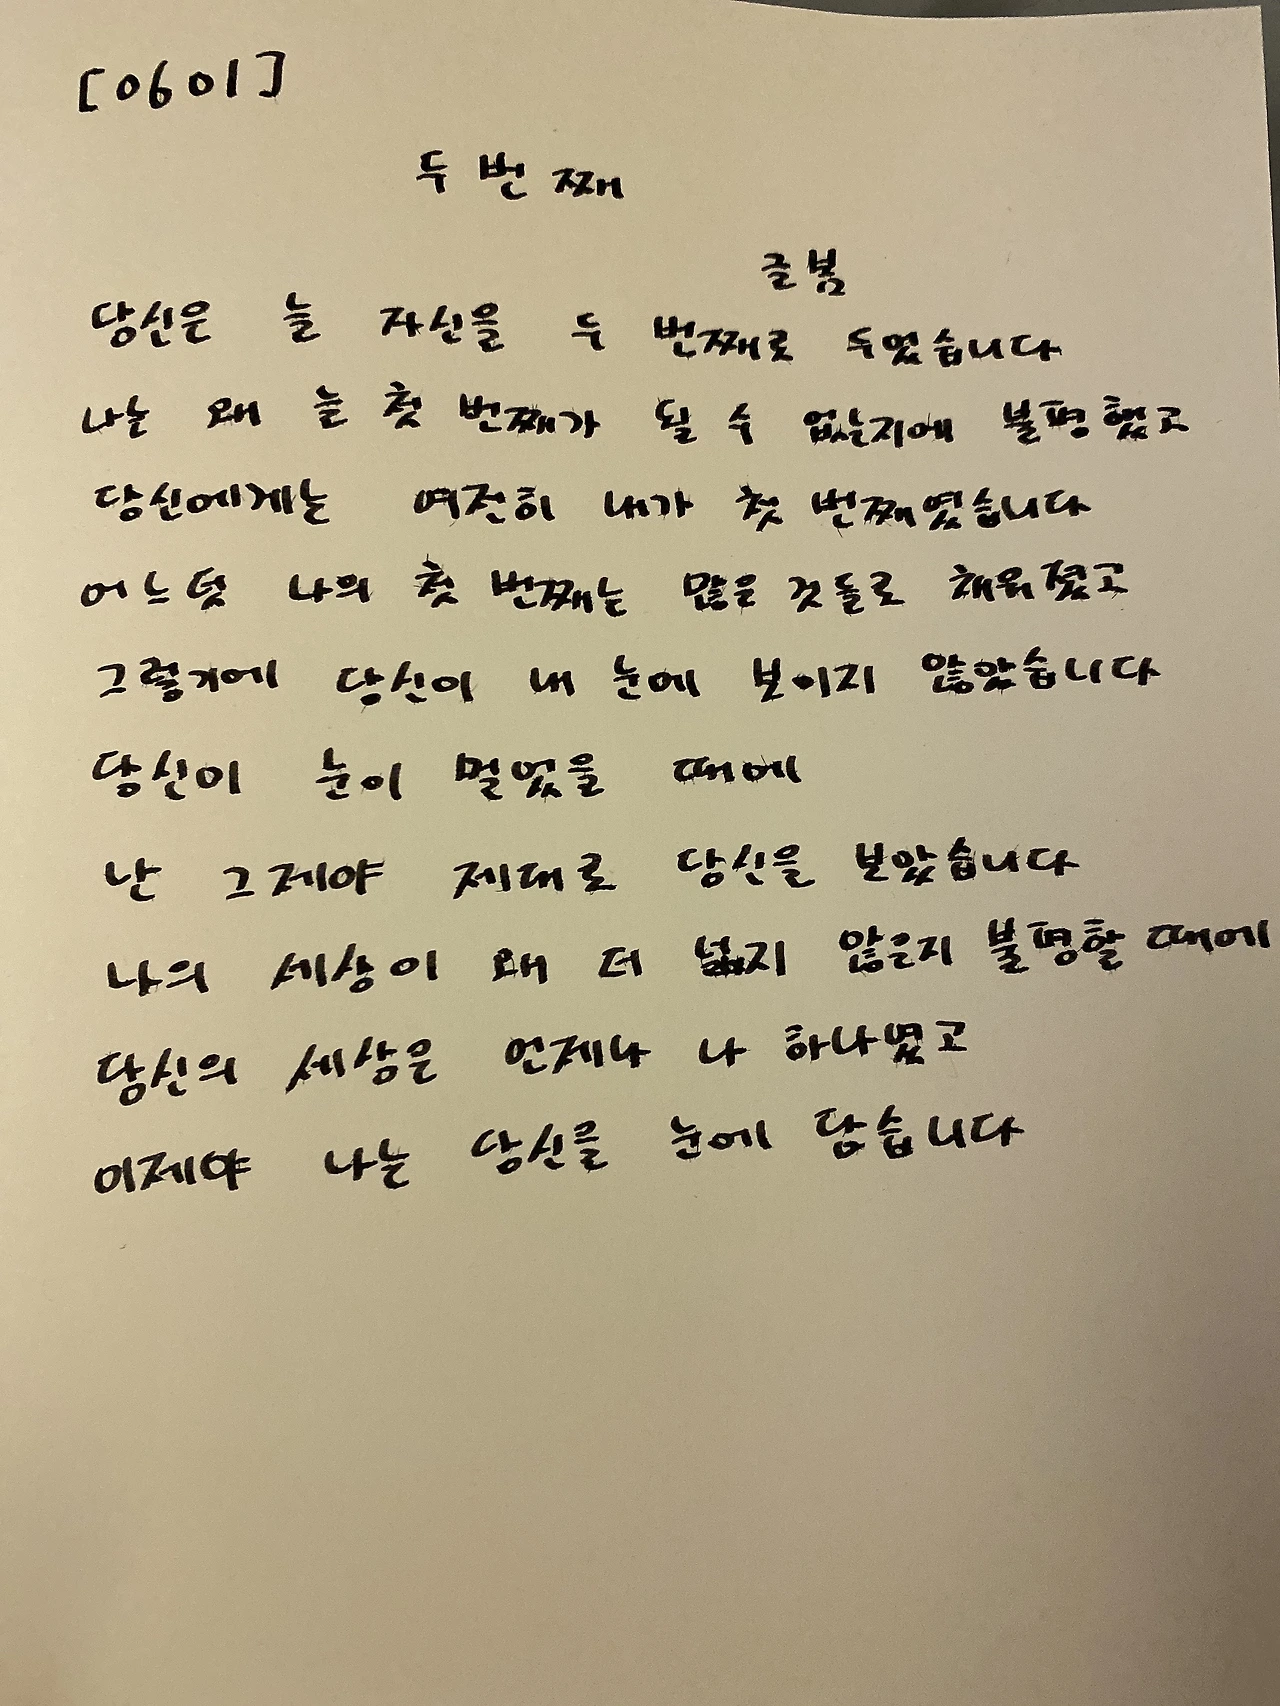 [0601]
두 번 째
글봄
당신은 늘 자신을 두 번째로 두었습니다
나는 왜 늘 첫 번째가 될 수 없는지에 불평했고
당신에게는 여전히 내가 첫 번째였습니다
어느덧 나의 첫 번째는 많은 것들로 채워졌고
그렇기에 당신이 내 눈에 보이지 않았습니다
당신이 눈이 멀었을 때에
난 그제야 제대로 당신을 보았습니다
나의 세상이 왜 더 넓지 않은지 불평할 때에
당신의 세상은 언제나 나 하나였고
이제야 나는 당신을 눈에 담습니다